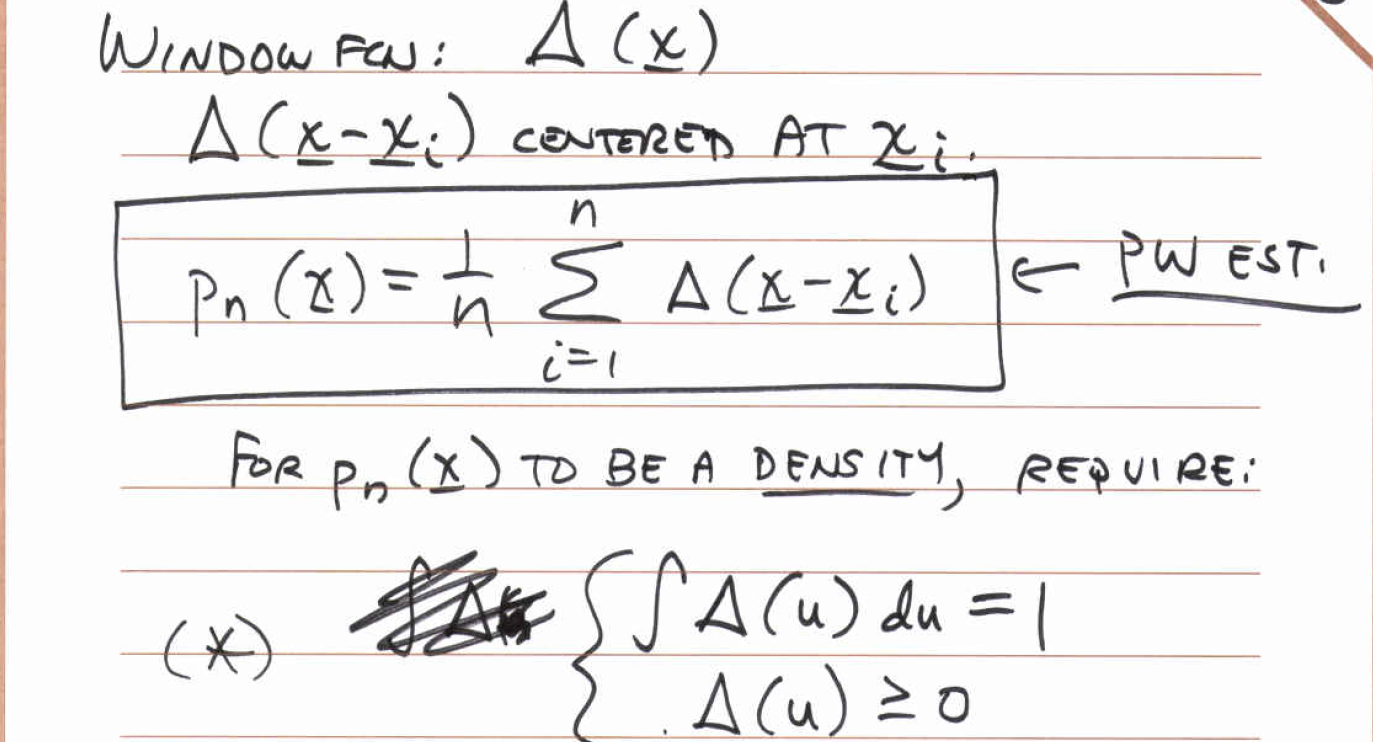 WINDOW FCN: Δ(x)
Δ(x-xi) CENTERED AT xi.
pn(x) = 1/n Σ i=1 n Δ(x-xi) ← PW EST.
FOR pn(x) TO BE A DENSITY, REQUIRE:
(*) { ∫Δ(u) du = 1
Δ(u) ≥ 0